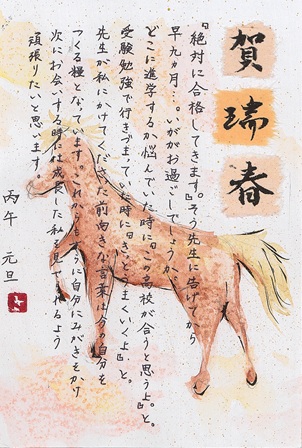 賀瑞春
『絶対に合格してきます。』そう先生に告げてから
早九ヵ月…。いかがお過ごしでしょうか。
どこに進学するか悩んでいた時に『この高校が合うと思うよ。』と。
受験勉強で行きづまっていた時に『きっと上手くいくよ。』と。
先生が私にかけてくださった前向きな言葉は今の自分を
つくる糧となっています。これからもさらに自分にみがきをかけ
次にお会いする時には成長した私を見せられるよう
頑張りたいと思います。
丙午 元旦